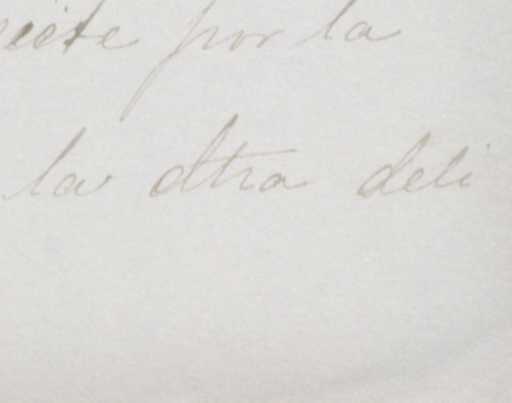 por la
la otra deli